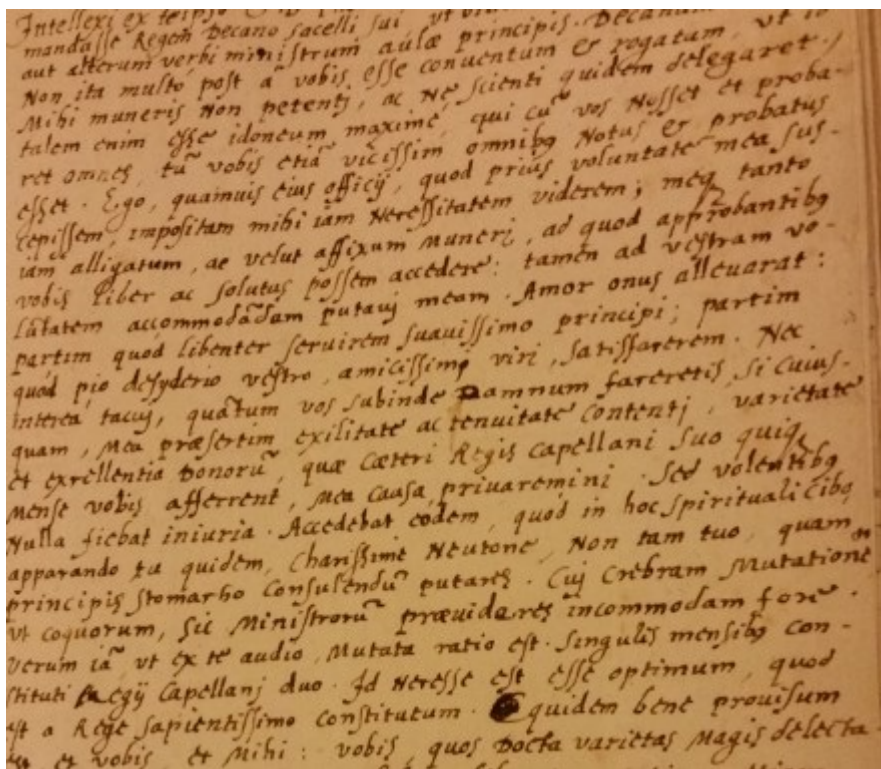 Intellexi ex te ipso
mandasse Regem Decano sacelli sui ut
aut alterum verbi ministrum aulæ principis. Decanum
Non ita multo post ā vobis esse conventum & rogatum, ut
Mihi muneris Non petentj, ac Ne scienti quidem delegaret.
talem enim esse idoneum maximè, qui cū vos Nosset et proba-
ret omnes, tū vobis etiā vicissim omnibꝫ Notus & probatus
esset. Ego, quamuis eius officij, quod prius voluntate mea sus-
cepissem, impositam mihi iam Necessitatem viderem; meqꝫ tanto
iam alligatum, ac velut affixum muneri, ad quod approbantibꝫ
vobis liber ac solutus possem accedere: tamen ad vestram vo-
lūtatem accommodādam putavj meam. Amor onus alleuarat:
partim quod libenter servirem suavissimo principi; partim
quod pio desyderio vestro, amicissimj viri, satisfacerem. Nec
interea tacuj, quātum vos subinde Damnum faceretis, si cuius-
quam, mea præsertim exilitate ac tenuitate contentj, varietate
et excellentia Donorū, quæ cæteri Regis Capellani suo quiqꝫ
mense vobis afferrent, mea causa privaremini. Sed volentibꝫ
Nulla fiebat iniuria. Accedebat eodem, quod in hoc spirituali cibo
apparando tu quidem, Charissime Neutone, Non tam tuo, quam
principis stomacho Consulendū putares. Cuj Crebram Mutationē
ut coquorum, sic Ministrorū prævidares incommodam fore.
Verum iā, ut ex te audio, Mutata ratio est. Singulis mensibꝫ con-
stituti Regij Capellanj duo. Id Necesse est esse optimum, quod
est a Rege sapientissimo constitutum. Et quidem bene provisum
est et vobis, et Mihi: vobis, quos Docta varietas magis delecta